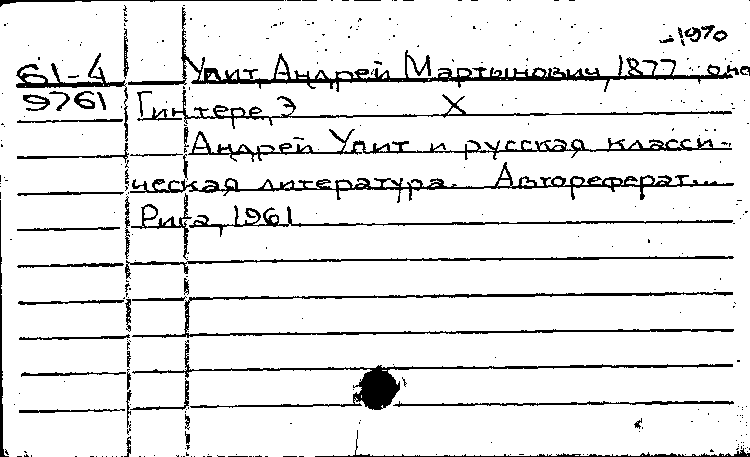 -1970
61-4 Упит, Андрей Мартынович, 1877
9761 Гинтере, Э X
Андрей Упит и русская класси-
ческая литература. Автореферат...
Рига, 1961